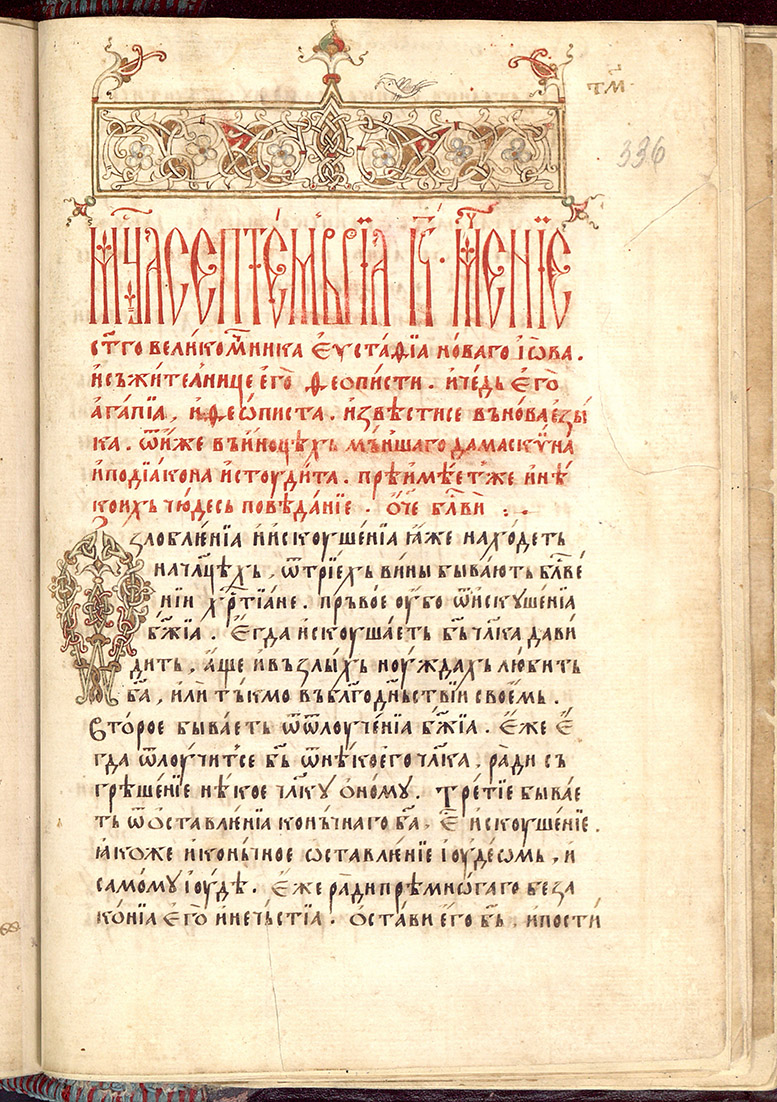 тм҃
336
Мⷭ҇ца септемврїа к҃ · мꙋ҃ченїе
ст҃го великомⷱ҇ника еѵстаѳїа новаго іѡва .
и съжителнице его̀ ѳеописти . и чедь его̀
агапїа , и ѳеописта . извѣстисе въ нова езы
ка . ѿ иже въ иноцѣхъ мънѣшаго дамаскѵна
иподїакона и стоудита . прѣимѣет же и нѣ
коихъ чюдесь повѣданїе . ѻч҃е бл҃ви :·
Ѡзлоблꙗенїа и искоушенїа ꙗже находеть
на чл҃цѣхъ , ѿ трїехъ вины бывають бл҃ве
нїи хрⷭ҇тїане . пръвое оубо ѿ искушенїа
бж҃їа . Егда искоушаеть бъ҃ чл҃ка , да ви
дить , аще и въ злыхъ ноуждахъ любить
ба҃ , или тъкмо въ бл҃годньствїи своемь .
Второе бываеть ѿ ѿлоученїа бж҃їа . Еже е
гда ѿлоучитсе бъ҃ ѿ нѣкоего чл҃ка , ради съ
грѣшенїе нѣкое чл҃ку ономꙋ . Третїе бывае
ть ѿ оставлꙗенїа конъчнаго ба҃ , е҃ искоушенїе .
ꙗкоже и конъчное ѡставлꙗенїе іоудеѡмь , и
самомꙋ іоудѣ . Еже ради прѣмнѡгаго беза
конїа его̀ и нечьстїа . остави его бъ҃ , и пости